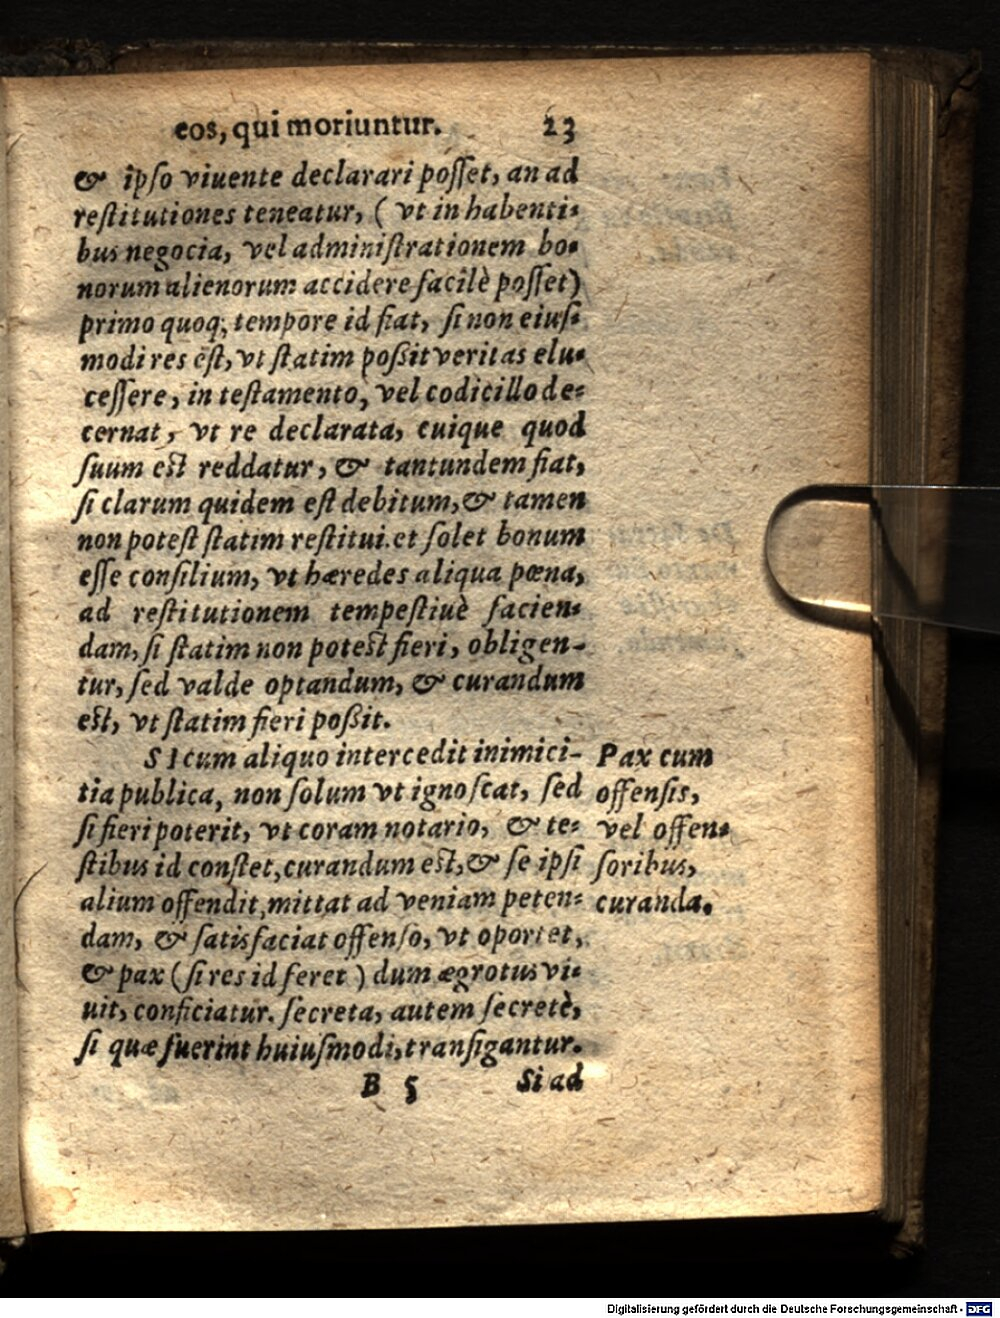 eos, qui moriuntur. 23
& ipſo viuente declarari poſſet, an ad
reſtitutiones teneatur, ( vt in habenti-
bus negocia, vel adminiſtrationem bo-
norum alienorum accidere facilè poſſet)
primo quoq; tempore id fiat, ſi non eiuſ-
modi res eſt, vt ſtatim poßit veritas elu-
ceſſere, in teſtamento, vel codicillo de-
cernat, vt re declarata, cuique quod
ſuum eſt reddatur, & tantundem fiat,
ſi clarum quidem eſt debitum, & tamen
non poteſt ſtatim reſtitui. et ſolet bonum
eſſe conſilium, vt hæredes aliqua pœna,
ad reſtitutionem tempeſtiuè facien-
dam, ſi ſtatim non poteſt fieri, obligen-
tur, ſed valde optandum, & curandum
eſt, vt ſtatim fieri poßit.
SI cum aliquo intercedit inimici-
tia publica, non ſolum vt ignoſcat, ſed
ſi fieri poterit, vt coram notario, & te-
ſtibus id conſtet, curandum eſt, & ſe ipſi
alium offendit, mittat ad veniam peten-
dam, & ſatisfaciat offenſo, vt oportet,
& pax (ſi res id feret) dum ægrotus vi-
uit, conficiatur. ſecreta, autem ſecretè,
ſi quæ fuerint huiuſmodi, tranſigantur.
Pax cum
offenſis,
vel offen-
ſoribus,
curanda.
B 5 Si ad
Digitalisierung gefördert durch die Deutsche Forschungsgemeinschaft - DFG